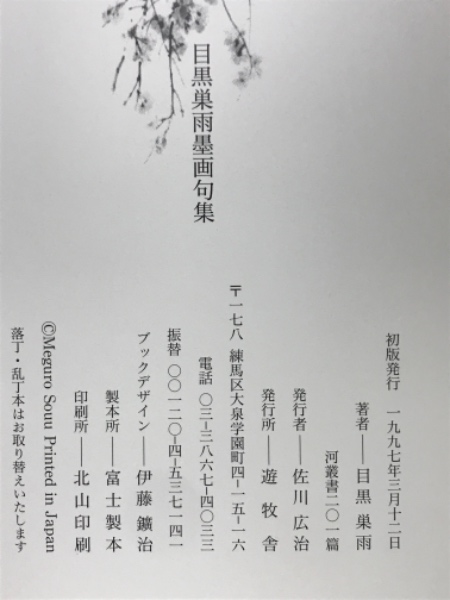 目黒巣雨墨画句集
初版発行　一九九七年三月十二日
著者――目黒巣雨
河叢書二〇一篇
発行者――佐川広治
発行所――遊牧舎
〒一七八　練馬区大泉学園町四-一五-一六
電話　〇三-三八六七-四〇三三
振替　〇〇一二〇-四-五三七一四一
ブックデザイン――伊藤鑛治
製本所――富士製本
印刷所――北山印刷
©Meguro Souu Printed in Japan
落丁・乱丁本はお取り替えいたします